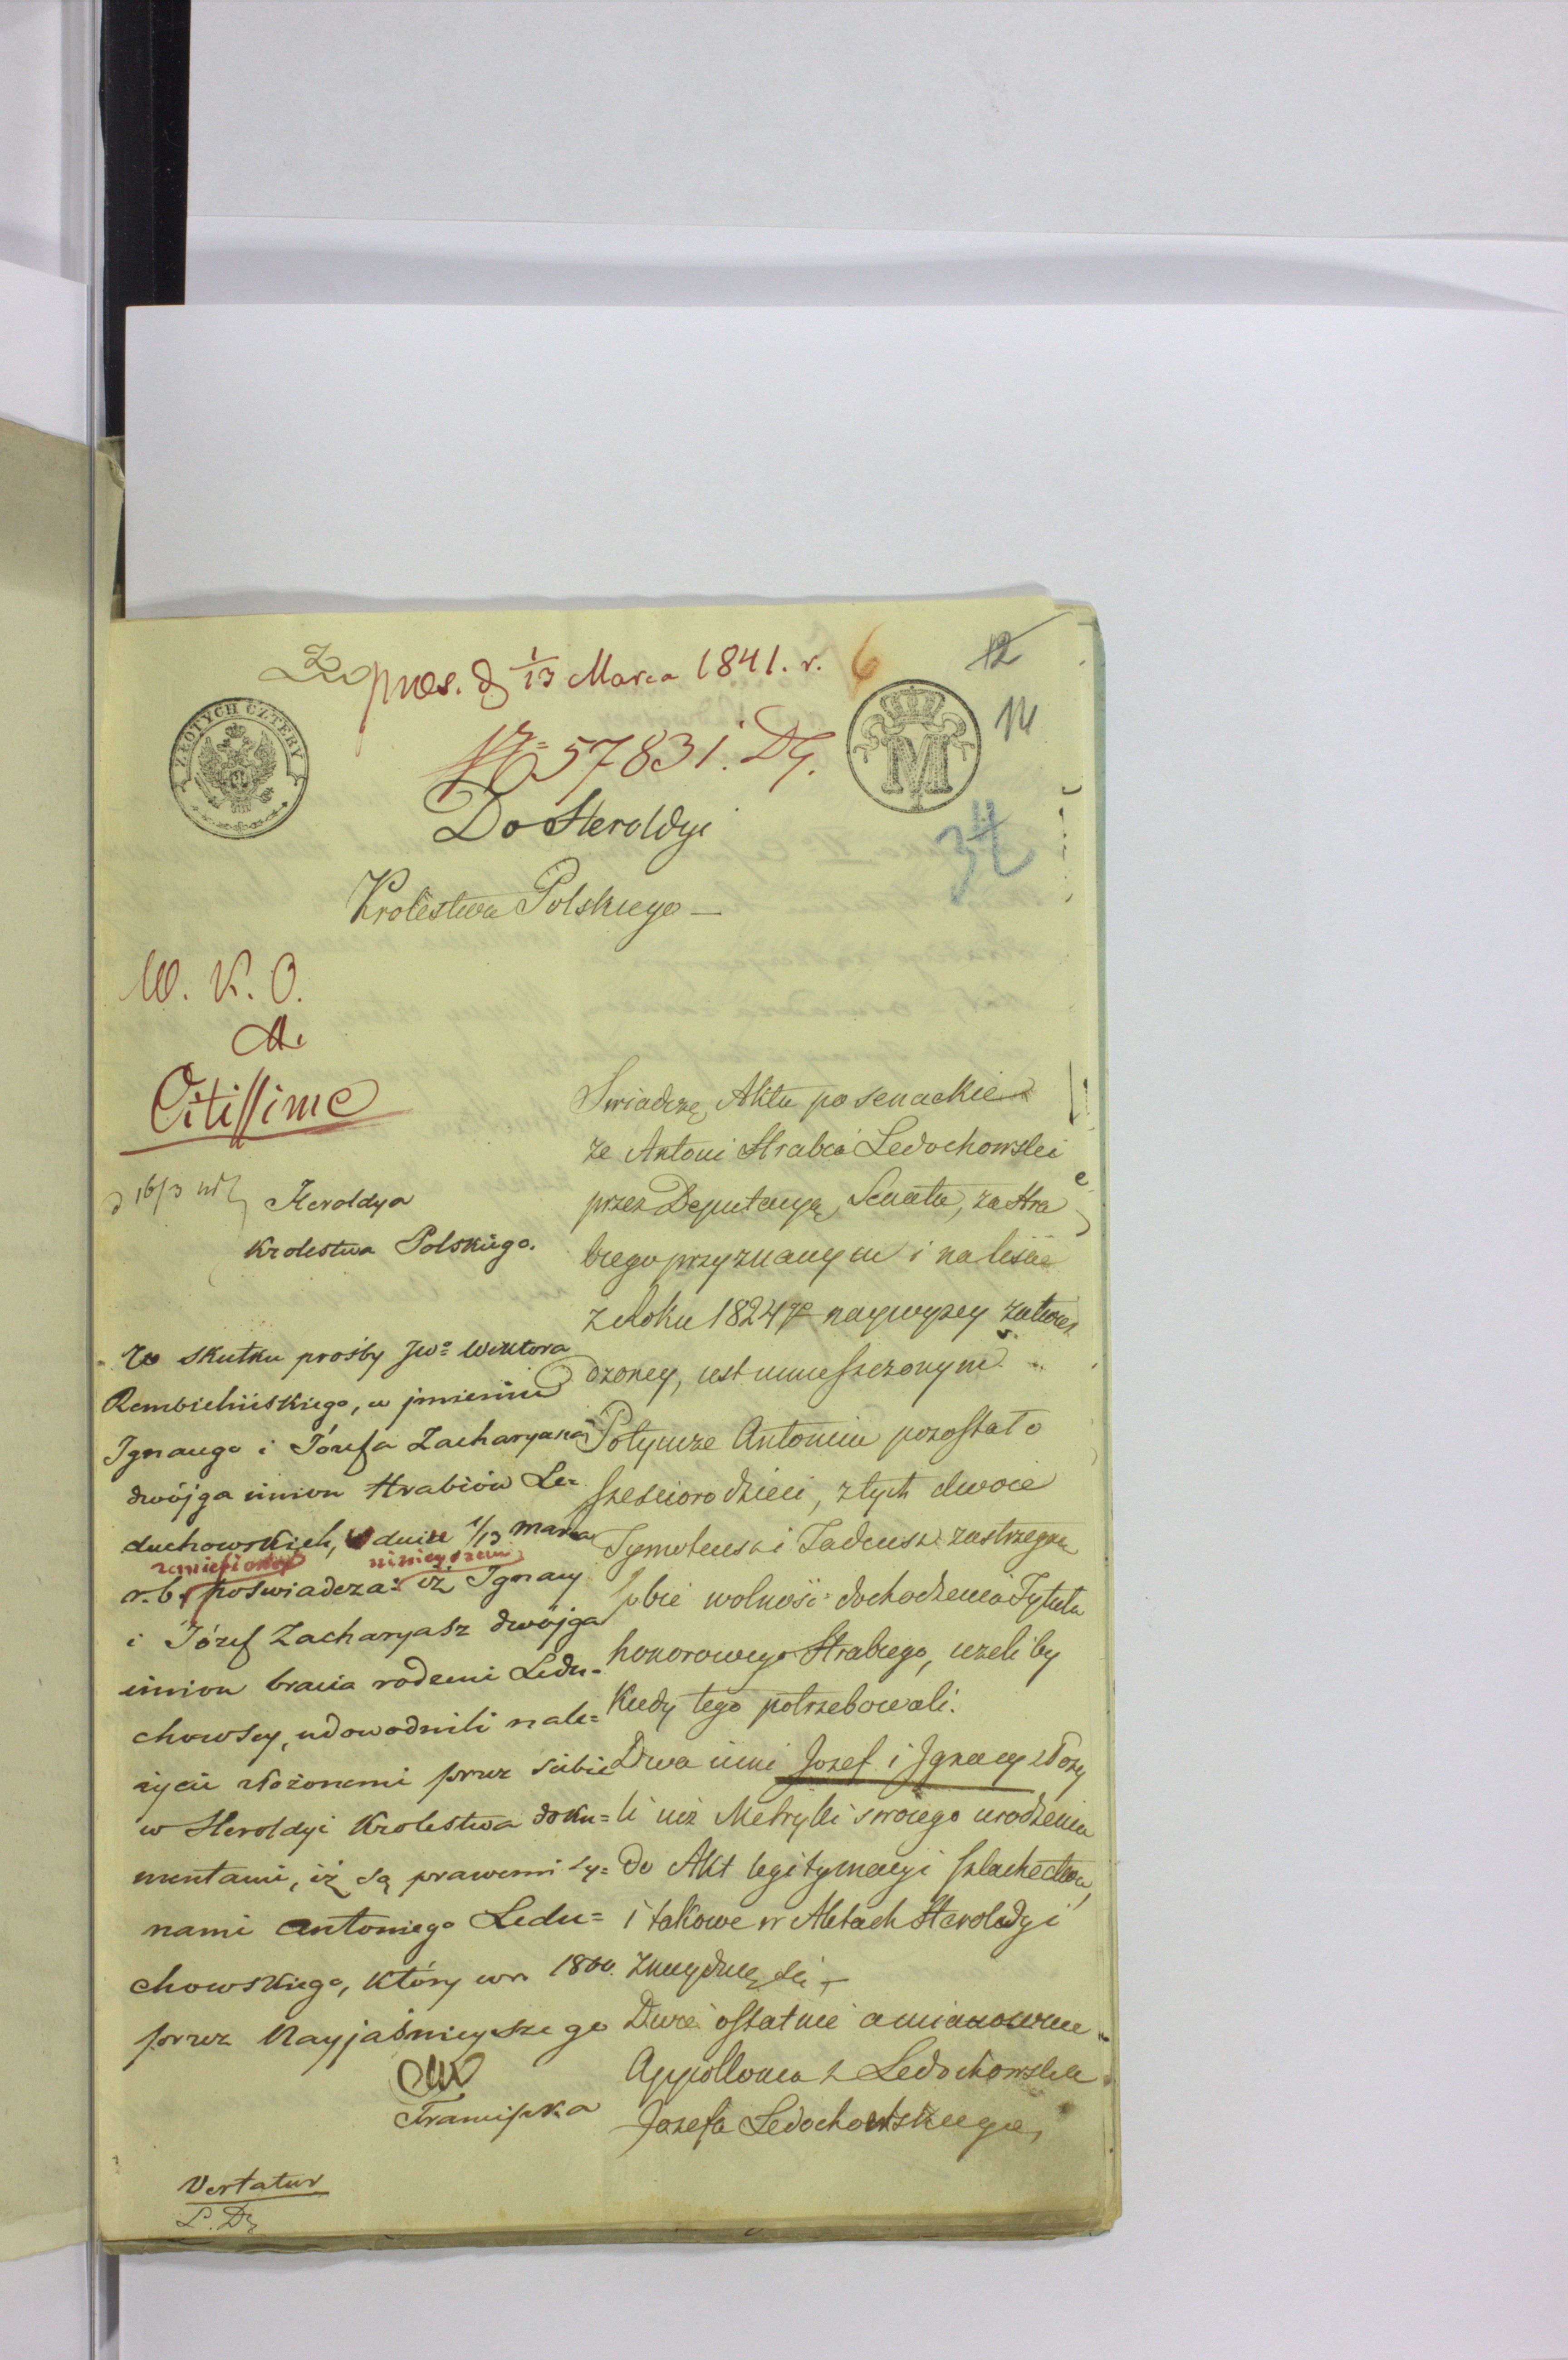 pres. d 1/13 Marca 1841. r. 6
12
14
ZŁOTYCH CZTERY
M
№ 57831. DG.
34
Do Heroldyi
Krolestwa Polskiego —
W. K. O.
Citissime
d 16/3
Heroldya
Krolestwa Polskiego.
W skutku prośby JWo Wiktora
Rembielińskiego, w jmieniu
Ignacego i Józefa Zacharyasza
dwójga imion Hrabiów Le=
duchowskich, w dniu 1/13 marca
zaniesionej niniejszem
r. b. poświadcza: iż Ignacy
i Józef Zacharyasz dwójga
imion bracia rodzeni Ledu=
chowscy, udowodnili nale=
życie złożonemi przez siebie
w Heroldyi Krolestwa doku=
mentami, iż są prawemi sy=
nami Antoniego Ledu=
chowskiego, który w r. 1800.
przez Nayjaśnieyszego
Franciszka
Vertatur
Swiadczą Akta po senackie
że Antoni Hrabia Ledochowski
przez Deputacyą Senatu, za Hra
biego przyznanym i na liście
z Roku 1824go naywyzey zatwier
dzoney, jest umieszczonym.
Potymze Antonim pozostało
sześcioro dzieci, z tych dwoie
Tymoteusz i Tadeusz zastrzegają
sobie wolność dochodzenia Tytułu
honorowego Hrabiego, jezeliby
kiedy tego potrzebowali.
Dwa inni Jozef i Ignacy złoży
li już Metryki swoiego urodzenia
do Akt legitymacyi szlachectwa,
i takowe w Aktach Heroldyi
znaydują się —
Dwie ostatnie a mianowicie
Appollonia z Ledochowska
Jozefa Ledochowskiego,